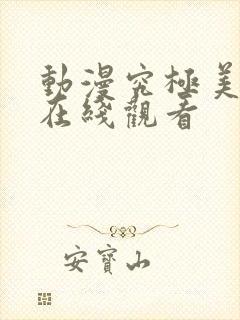 動漫究極美
在綫觀看
安寶山